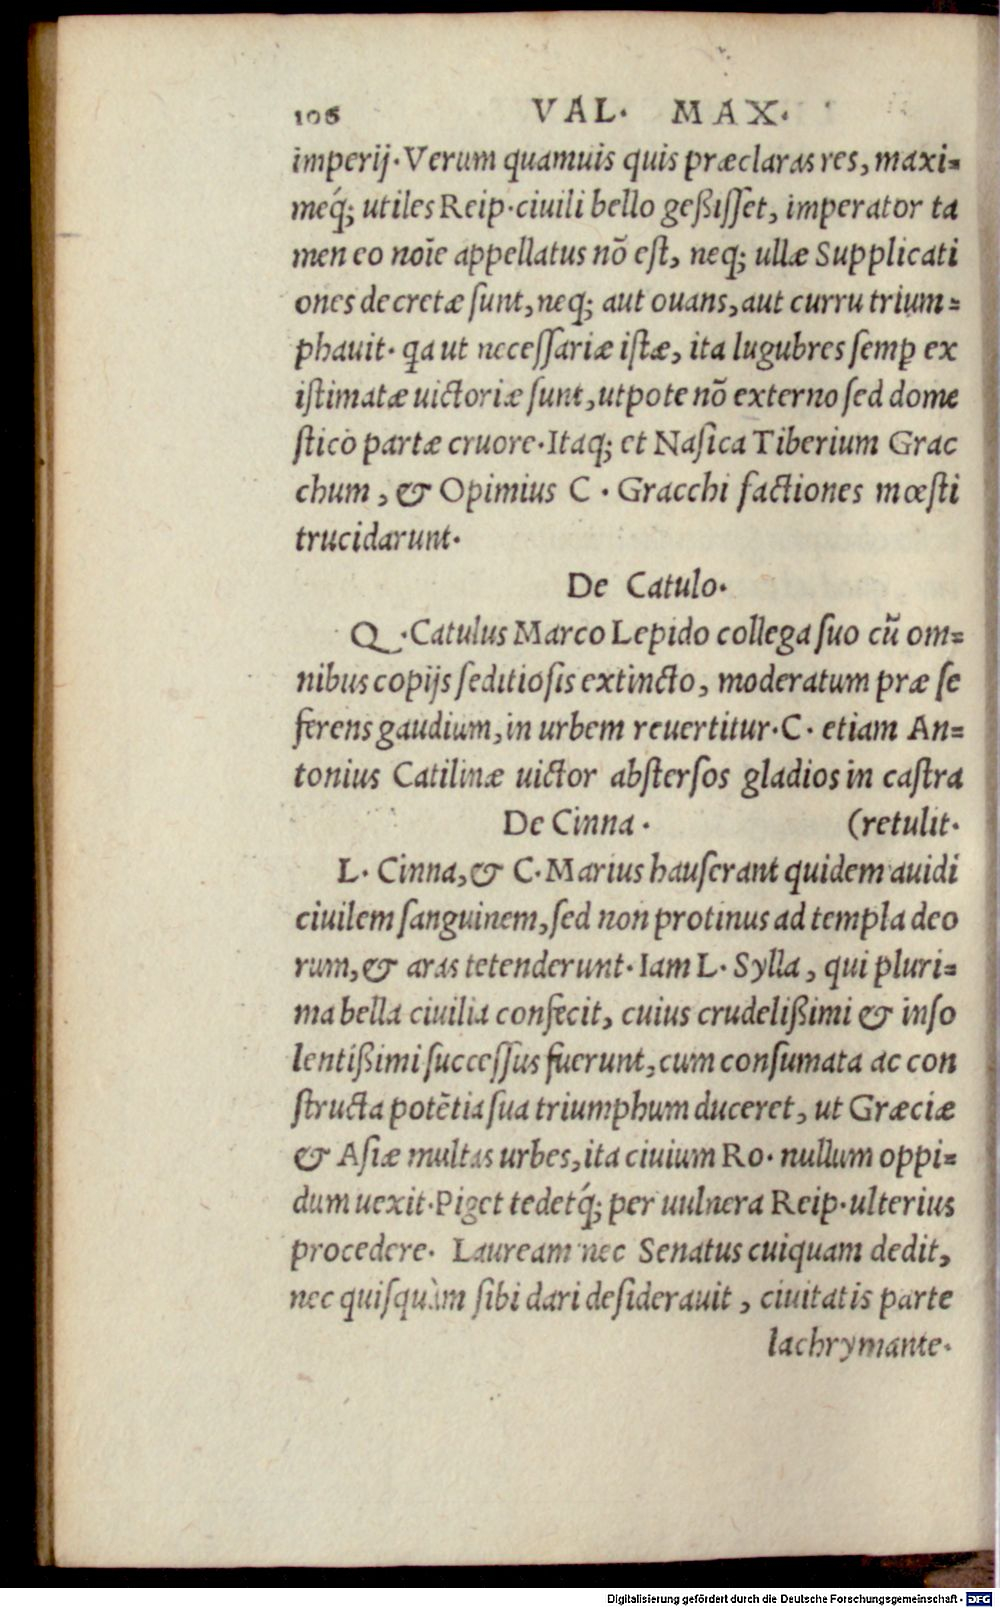 106 VAL. MAX.
imperij. Verum quamuis quis præclaras res, maxi=
meq́; utiles Reip. ciuili bello geßiſſet, imperator ta
men eo noīe appellatus nō eſt, neq; ullæ Supplicati
ones decretæ ſunt, neq; aut ouans, aut curru trium=
phauit. qa ut neceſſariæ iſtæ, ita lugubres ſemꝑ ex
iſtimatæ uictoriæ ſunt, utpote nō externo ſed dome
ſtico partæ cruore. Itaq; et Naſica Tiberium Grac
chum, & Opimius C. Gracchi factiones mœſti
trucidarunt.
De Catulo.
Q. Catulus Marco Lepido collega ſuo cū om=
nibus copijs ſeditioſis extincto, moderatum præ ſe
ferens gaudium, in urbem reuertitur. C. etiam An=
tonius Catilinæ uictor abſterſos gladios in caſtra
De Cinna. (retulit.
L. Cinna, & C. Marius hauſerant quidem auidi
ciuilem ſanguinem, ſed non protinus ad templa deo
rum, & aras tetenderunt. Iam L. Sylla, qui pluri=
ma bella ciuilia confecit, cuius crudelißimi & inſo
lentißimi ſucceſſus fuerunt, cum conſumata ac con
ſtructa potētia ſua triumphum duceret, ut Græciæ
& Aſiæ multas urbes, ita ciuium Ro. nullum oppi=
dum uexit. Piget tedetq́; per uulnera Reip. ulterius
procedere. Lauream nec Senatus cuiquam dedit,
nec quiſquàm ſibi dari deſiderauit, ciuitatis parte
lachrymante.
Digitalisierung gefördert durch die Deutsche Forschungsgemeinschaft - DFG